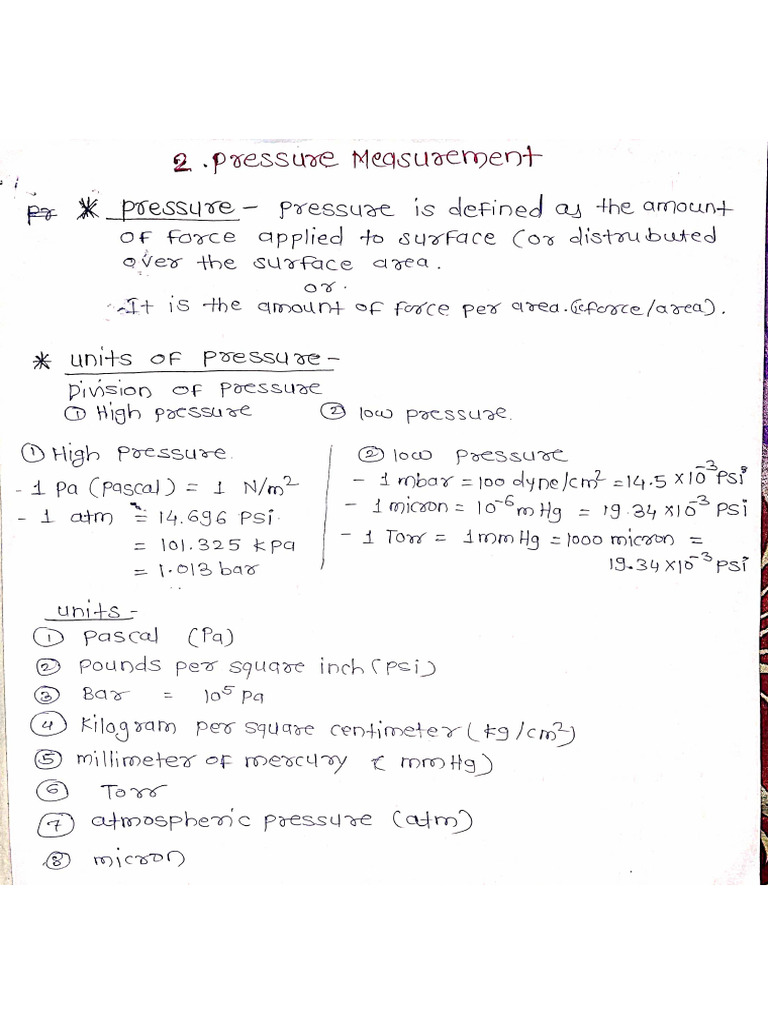 2. Pressure Measurement
Pr * Pressure - Pressure is defined as the amount
of force applied to surface (or distrubuted
over the surface area.
or.
- It is the amount of force per area. (ie force/area).
* Units of Pressure -
Division of Pressure
① High pressure ② low pressure.
① High Pressure.
- 1 Pa (pascal) = 1 N/m²
- 1 atm = 14.696 Psi.
= 101.325 kpa
= 1.013 bar
② low pressure
- 1 mbar = 100 dyne/cm² = 14.5 × 10⁻³ Psi
- 1 micron = 10⁻⁶ m Hg = 19.34 × 10⁻³ Psi
- 1 Torr = 1 mm Hg = 1000 micron =
19.34 × 10⁻³ Psi
units -
① Pascal (Pa)
② Pounds per square inch (psi)
③ Bar = 10⁵ Pa
④ Kilogram per square centimeter (kg/cm²)
⑤ millimeter of mercury ( mmHg)
⑥ Torr
⑦ atmospheric pressure (atm)
⑧ micron